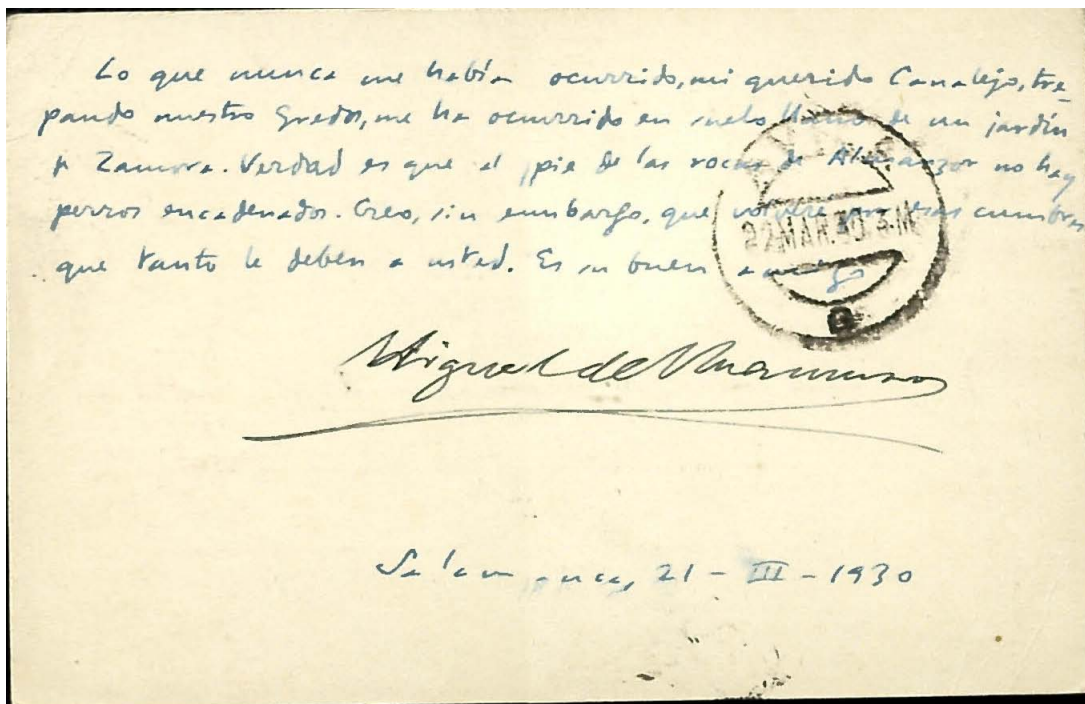 Lo que nunca me había ocurrido, mi querido Canalejo, tre-
pando nuestro Gredos, me ha ocurrido en suelo llano de un jardín
de Zamora. Verdad es que al pie de las rocas de Almanzor no hay
perros encadenados. Creo, sin embargo, que volveré por esas cumbres
que tanto le deben a usted. Es su buen amigo
22 MAR. 30. 3-M
Miguel de Unamuno
Salamanca, 21 - III - 1930